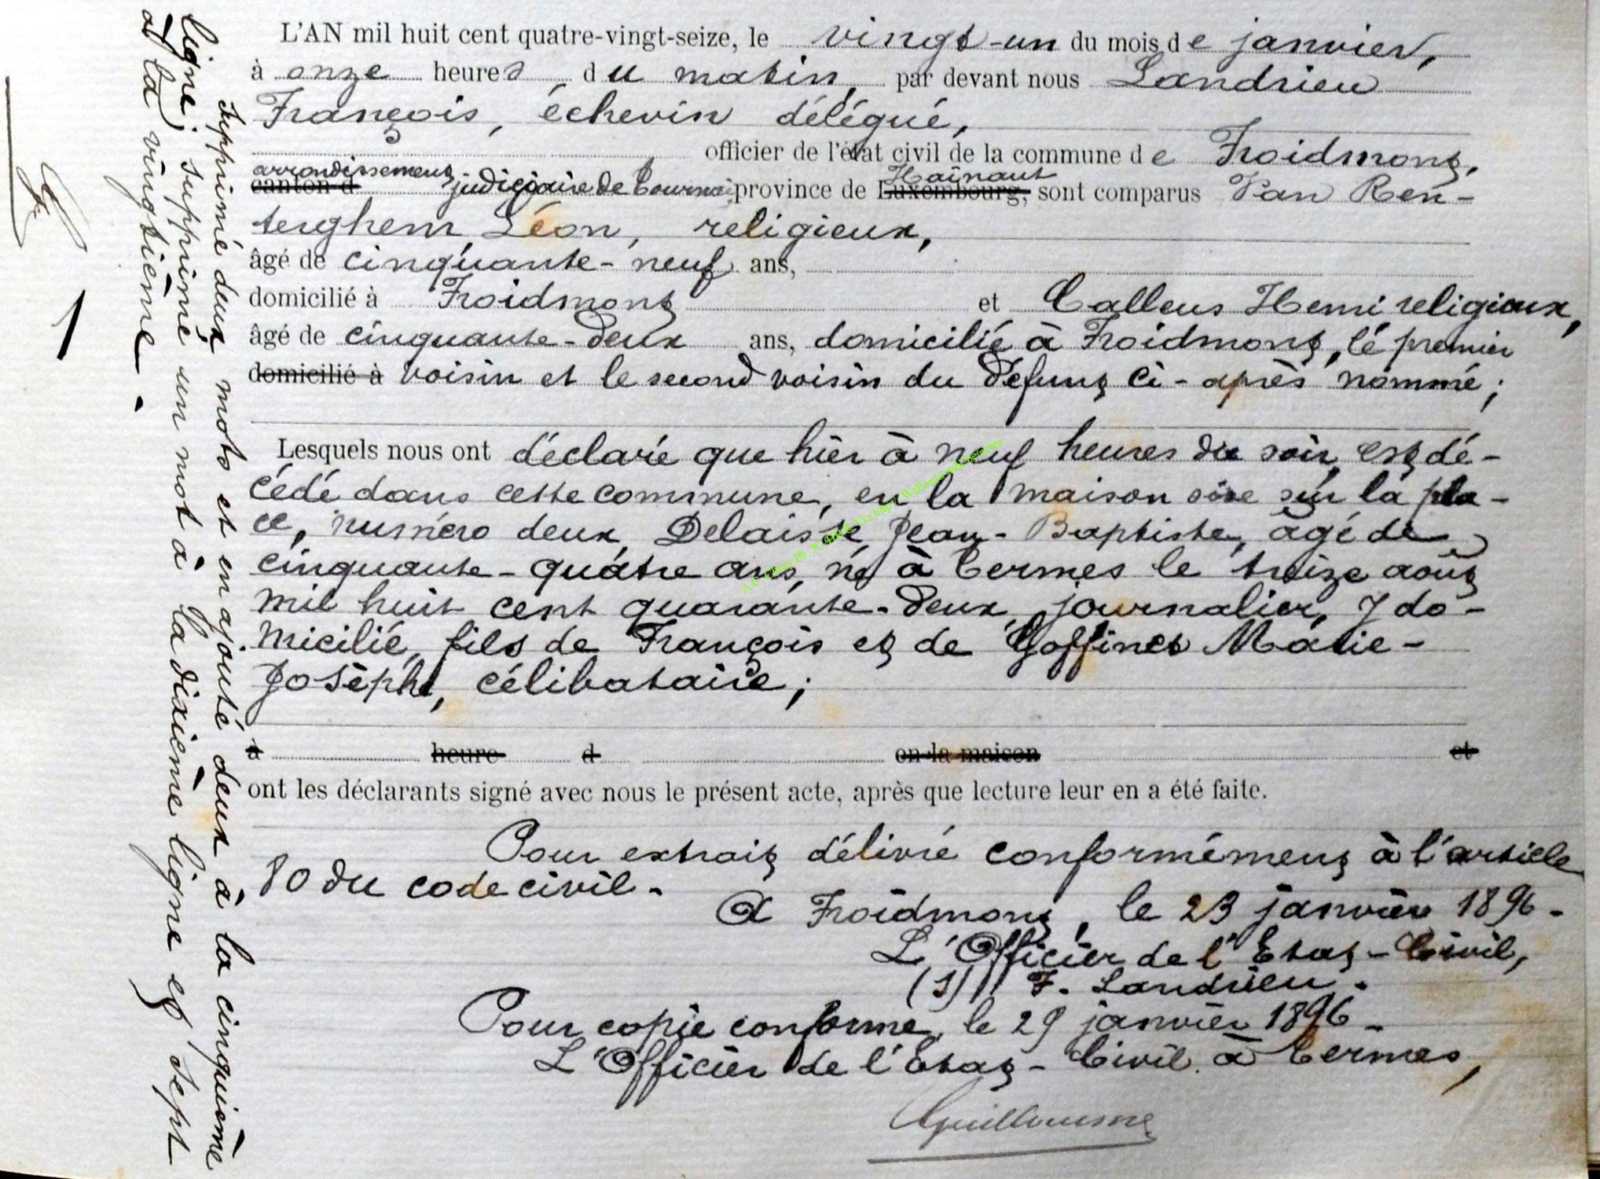 L'AN mil huit cent quatre-vingt-seize, le vingt-un du mois de janvier,
à onze heures du matin, par devant nous Landrieu
François, échevin délégué,
officier de l'état civil de la commune de Froidmont,
arrondissement judiciaire de Tournai Hainaut
canton d province de Luxembourg, sont comparus Van Ren-
terghem Léon, religieux,
âgé de cinquante-neuf ans,
domicilié à Froidmont et Calleus Henri religieux,
âgé de cinquante-deux ans, domicilié à Froidmont, le premier
domicilié à voisin et le second voisin du défunt ci-après nommé;
Lesquels nous ont déclaré que hier à neuf heures du soir, est dé-
cédé dans cette commune, en la maison sise sur la pla-
ce, numéro deux, Delaisse Jean-Baptiste, âgé de
cinquante-quatre ans, né à Termes le treize août
mil huit cent quarante-deux, journalier, y do-
micilié, fils de François et de Goffinet Marie-
Josèphe, célibataire;
à heure d en la maison et
ont les déclarants signé avec nous le présent acte, après que lecture leur en a été faite.
Pour extrait délivré conformément à l'article
80 du code civil.
A Froidmont, le 23 janvier 1896.
L'Officier de l'Etat-Civil,
(s) F. Landrieu.
Pour copie conforme, le 29 janvier 1896.
L'Officier de l'Etat-Civil à Termes,
Guillaume
Supprimé deux mots et en ajouté deux à la cinquième
ligne; supprimé un mot à la dixième ligne et sept
à la vingtième.
1